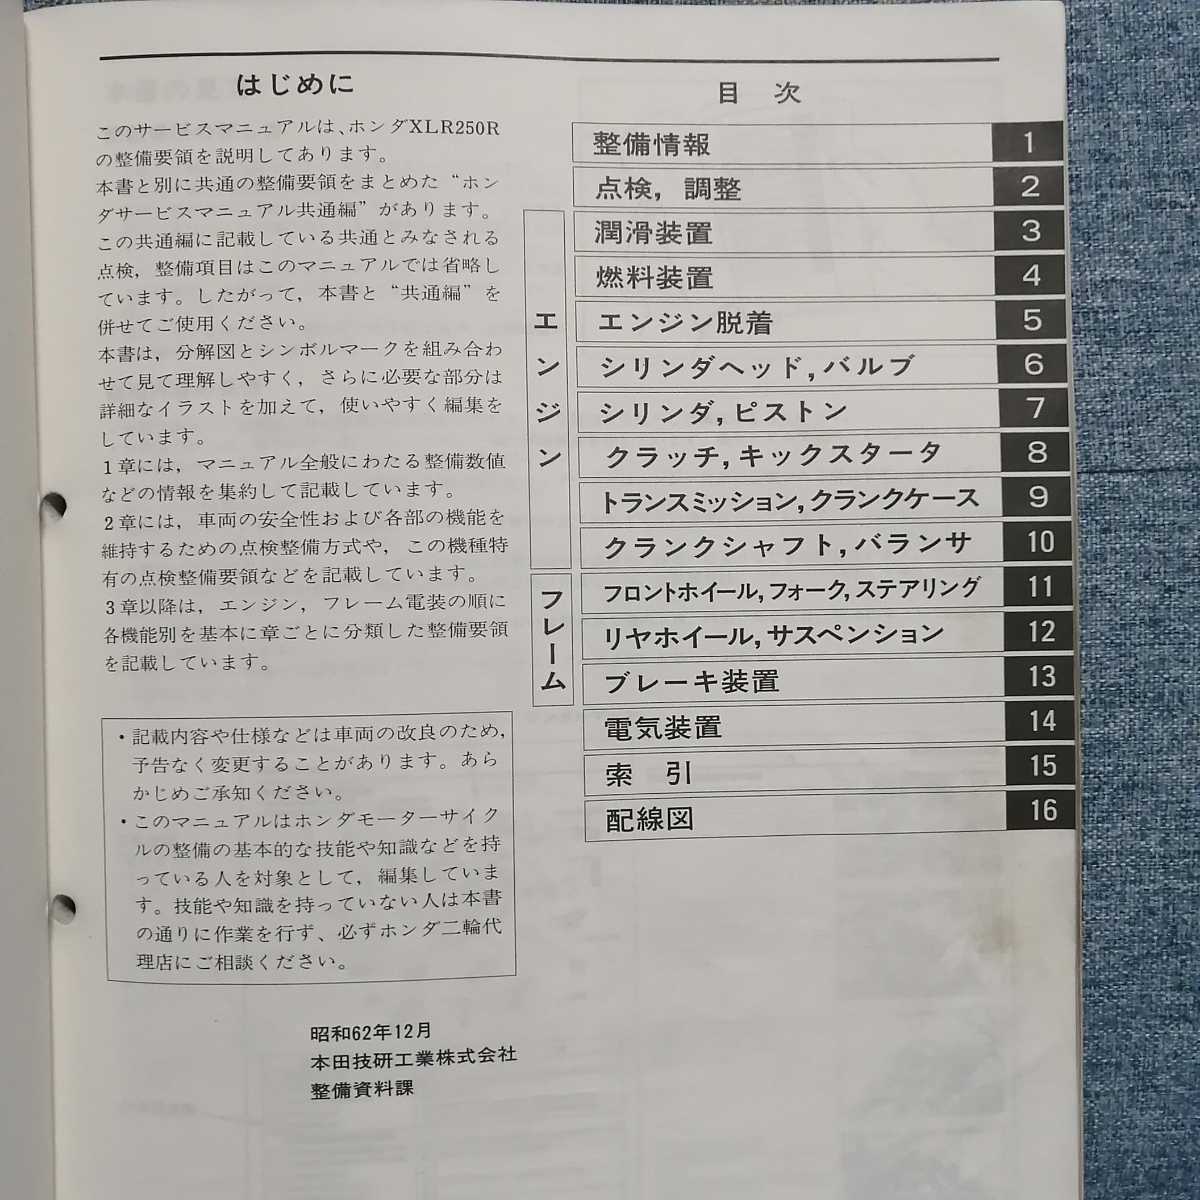 はじめに
このサービスマニュアルは、ホンダXLR250R
の整備要領を説明してあります。
本書と別に共通の整備要領をまとめた“ホン
ダサービスマニュアル共通編”があります。
この共通編に記載している共通とみなされる
点検，整備項目はこのマニュアルでは省略し
ています。したがって，本書と“共通編”を
併せてご使用ください。
本書は，分解図とシンボルマークを組み合わ
せて見て理解しやすく，さらに必要な部分は
詳細なイラストを加えて，使いやすく編集を
しています。
1章には，マニュアル全般にわたる整備数値
などの情報を集約して記載しています。
2章には，車両の安全性および各部の機能を
維持するための点検整備方式や，この機種特
有の点検整備要領などを記載しています。
3章以降は，エンジン，フレーム電装の順に
各機能別を基本に章ごとに分類した整備要領
を記載しています。
・記載内容や仕様などは車両の改良のため，
予告なく変更することがあります。あら
かじめご承知ください。
・このマニュアルはホンダモーターサイク
ルの整備の基本的な技能や知識などを持
っている人を対象として，編集していま
す。技能や知識を持っていない人は本書
の通りに作業を行ず、必ずホンダ二輪代
理店にご相談ください。
昭和62年12月
本田技研工業株式会社
整備資料課
目 次
整備情報 1
点検，調整 2
エンジン
潤滑装置 3
燃料装置 4
エンジン脱着 5
シリンダヘッド，バルブ 6
シリンダ，ピストン 7
クラッチ，キックスタータ 8
トランスミッション，クランクケース 9
クランクシャフト，バランサ 10
フレーム
フロントホイール，フォーク，ステアリング 11
リヤホイール，サスペンション 12
ブレーキ装置 13
電気装置 14
索 引 15
配線図 16